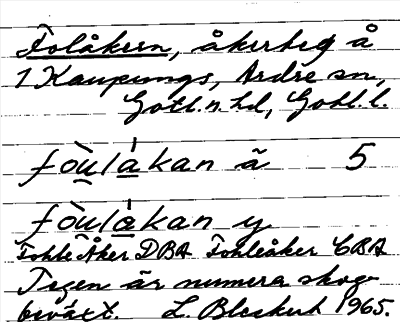 Folåkern, åkerteg å
1 Kaupungs, Ardre sn,
Gotl. n. hd, Gotl. l.
fòu̲lá̲kan ā̃ 5
fòu̲lá̲kan y
Fohle Åker DBA Fohleåker CBA
Tegen är numera skog-
beväxt. L. Bleskert 1965.